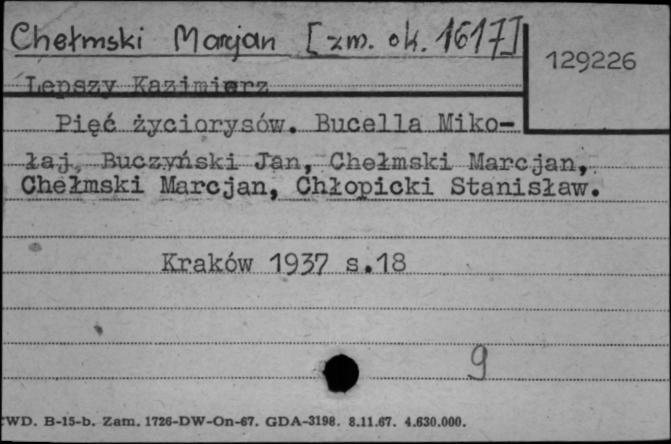 Chełmski Marcjan [zm. ok. 1617]
129226
Lepszy Kazimierz
Pięć życiorysów. Bucella Miko-
łaj, Buczyński Jan, Chełmski Marcjan,
Chełmski Marcjan, Chłopicki Stanisław.
Kraków 1937 s.18
9
WD. B-15-b. Zam. 1726-DW-On-67. GDA-3198. 8.11.67. 4.630.000.